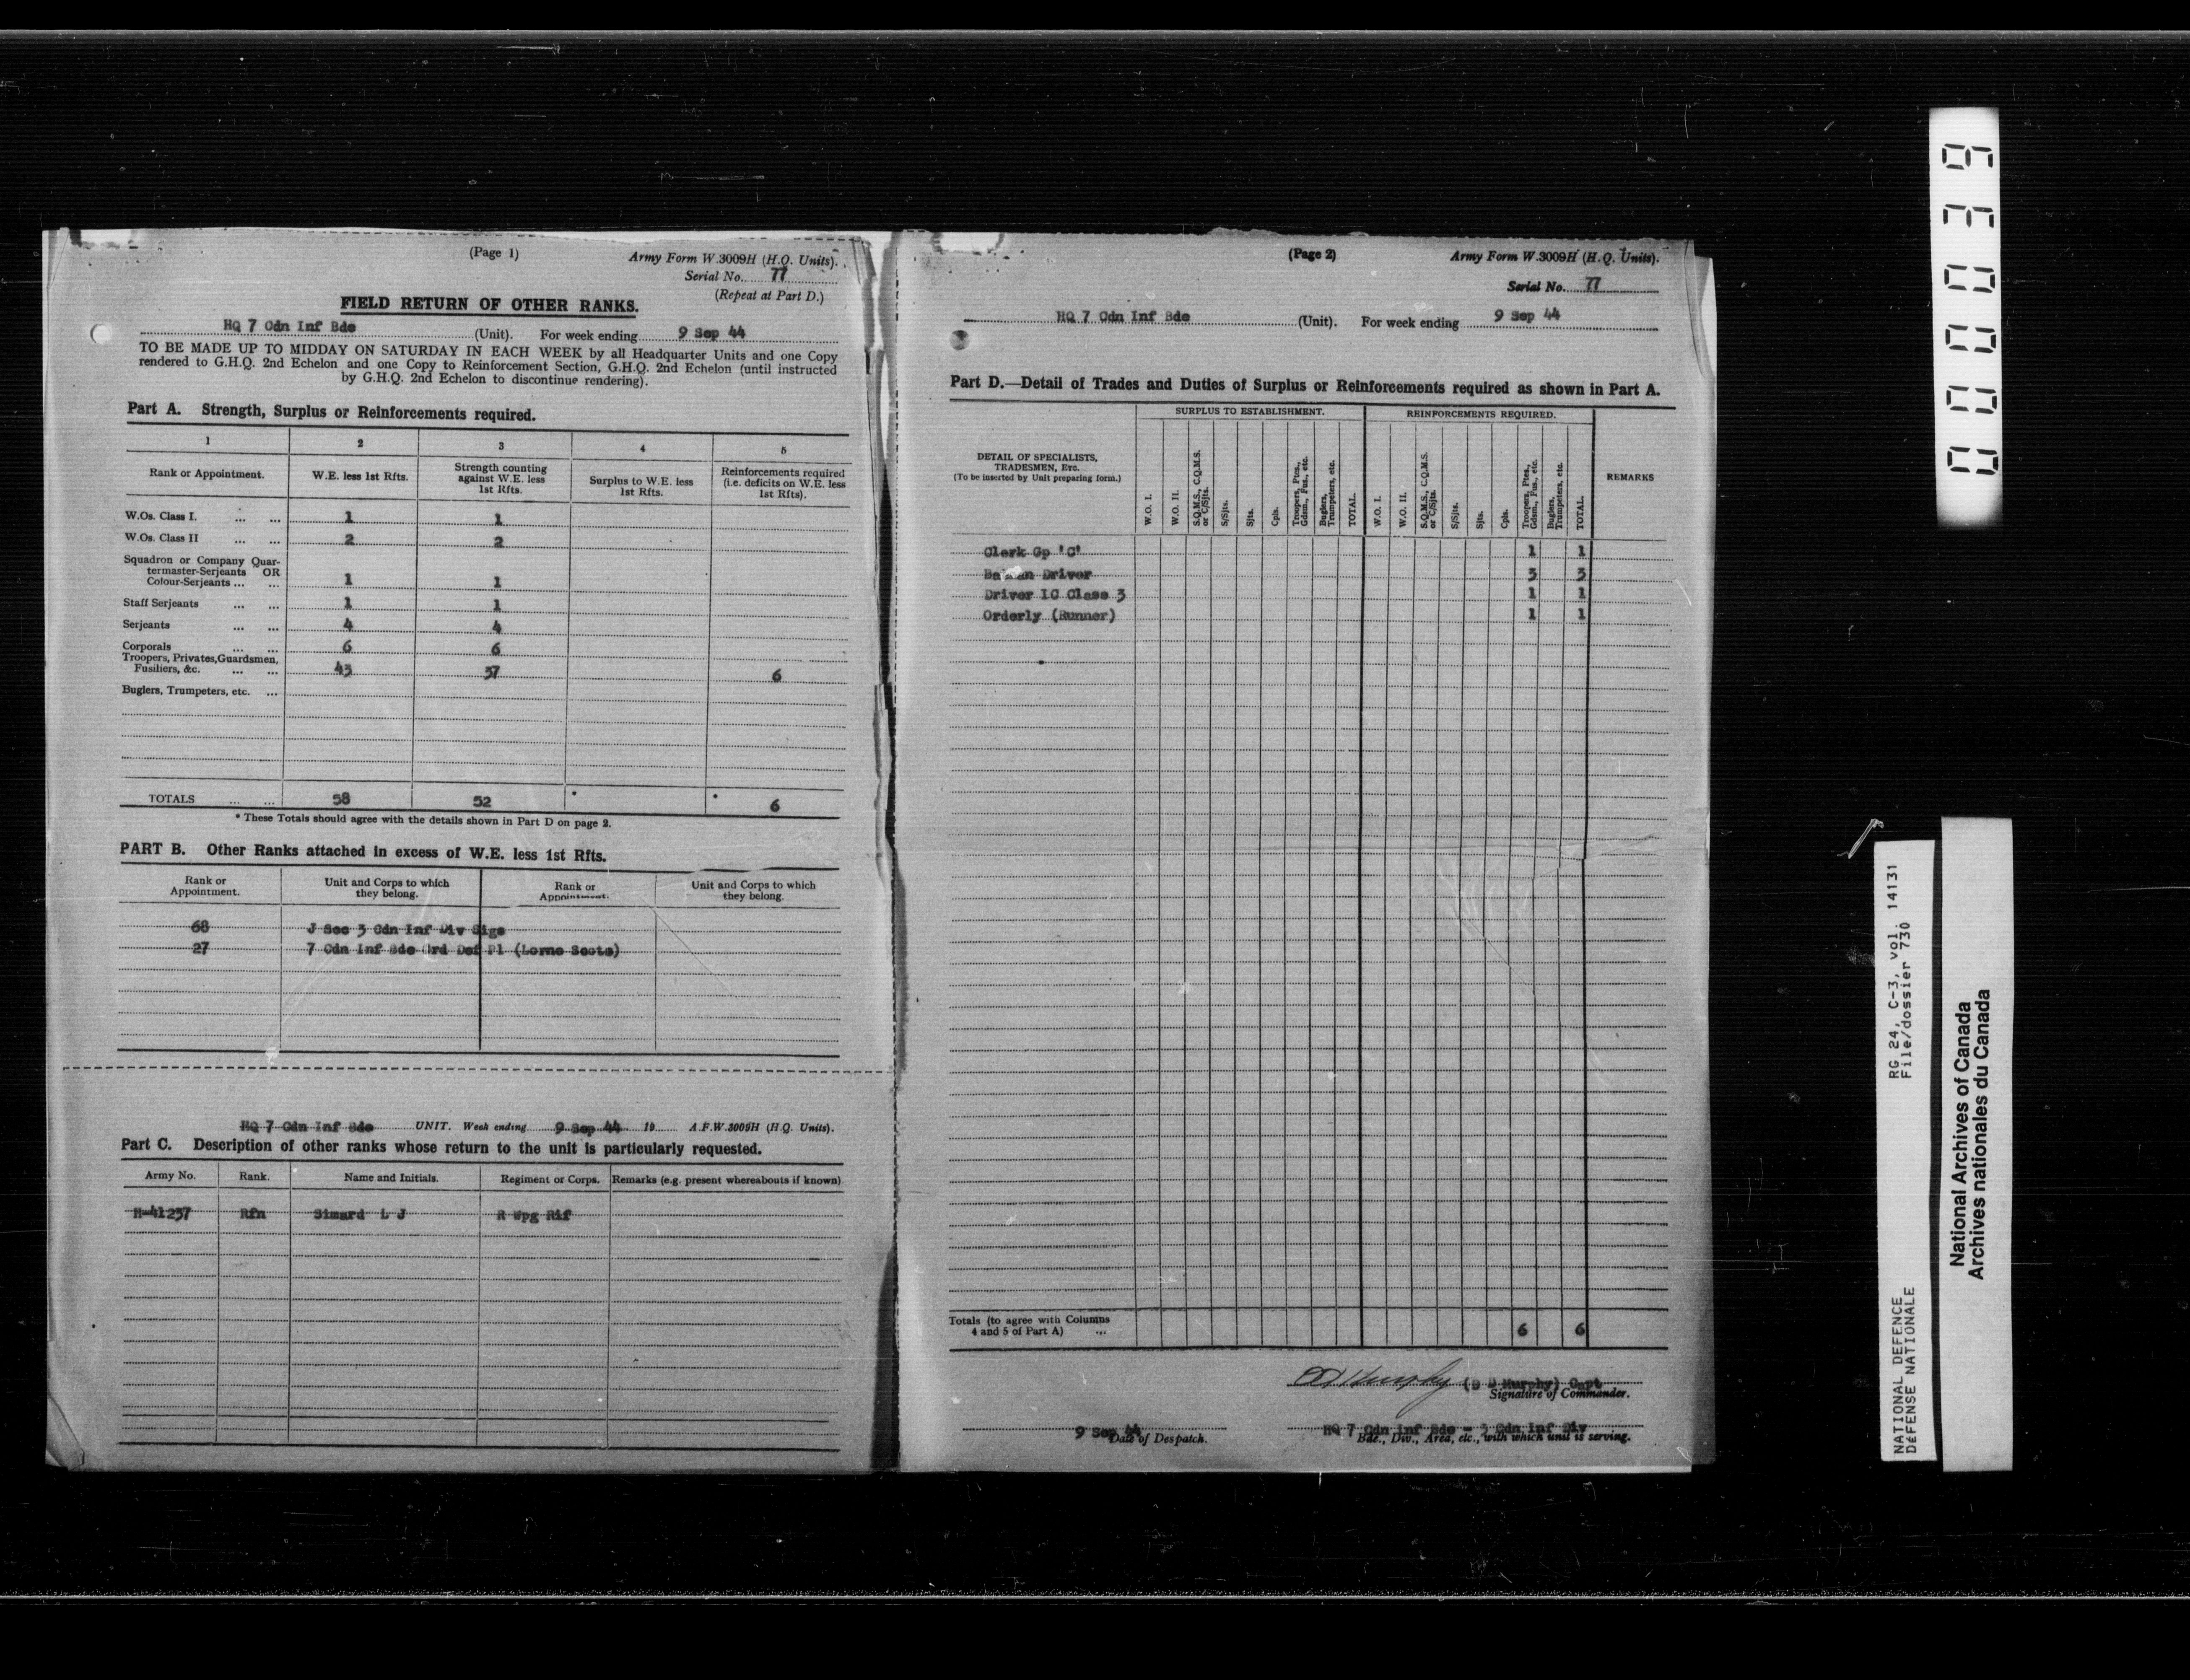 (Page 1)
Army Form W.3009H (H.Q. Units).
Serial No. 77
(Repeat at Part D.)
FIELD RETURN OF OTHER RANKS.
HQ 7 Cdn Inf Bde (Unit). For week ending 9 Sep 44
TO BE MADE UP TO MIDDAY ON SATURDAY IN EACH WEEK by all Headquarter Units and one Copy
rendered to G.H.Q. 2nd Echelon and one Copy to Reinforcement Section, G.H.Q. 2nd Echelon (until instructed
by G.H.Q. 2nd Echelon to discontinue rendering).
Part A. Strength, Surplus or Reinforcements required.
1 2 3 4 5
Rank or Appointment. W.E. less 1st Rfts. Strength counting against W.E. less 1st Rfts. Surplus to W.E. less 1st Rfts. Reinforcements required (i.e. deficits on W.E. less 1st Rfts).
W.Os. Class I. ... ... 1 1
W.Os. Class II ... ... 2 2
Squadron or Company Quar-
termaster-Serjeants OR
Colour-Serjeants ... ... 1 1
Staff Serjeants ... ... 1 1
Serjeants ... ... 4 4
Corporals ... ... 6 6
Troopers, Privates, Guardsmen,
Fusiliers, &c. ... ... 43 37 6
Buglers, Trumpeters, etc. ...
TOTALS ... ... 58 52 * * 6
* These Totals should agree with the details shown in Part D on page 2.
PART B. Other Ranks attached in excess of W.E. less 1st Rfts.
Rank or Appointment. Unit and Corps to which they belong. Rank or Appointment. Unit and Corps to which they belong.
68 J Sec 3 Cdn Inf Div Sigs
27 7 Cdn Inf Bde Grd Def Pl (Lorne Scots)
HQ 7 Cdn Inf Bde UNIT. Week ending 9 Sep 44 19 A.F.W.3009H (H.Q. Units).
Part C. Description of other ranks whose return to the unit is particularly requested.
Army No. Rank. Name and Initials. Regiment or Corps. Remarks (e.g. present whereabouts if known)
H-41237 Rfn Simard L J R Wpg Rif
(Page 2)
Army Form W.3009H (H.Q. Units).
Serial No. 77
HQ 7 Cdn Inf Bde (Unit). For week ending 9 Sep 44
Part D.—Detail of Trades and Duties of Surplus or Reinforcements required as shown in Part A.
SURPLUS TO ESTABLISHMENT. REINFORCEMENTS REQUIRED.
DETAIL OF SPECIALISTS,
TRADESMEN, ETC.
(To be inserted by Unit preparing form.)
W.O. I. W.O. II. S.Q.M.S., C.Q.M.S. or C/Sjts. S/Sjts. Sjts. Cpls. Troopers, Ptes., Gdsm., Fus., etc. Buglers, Trumpeters, etc. TOTAL. W.O. I. W.O. II. S.Q.M.S., C.Q.M.S. or C/Sjts. S/Sjts. Sjts. Cpls. Troopers, Ptes., Gdsm., Fus., etc. Buglers, Trumpeters, etc. TOTAL. REMARKS
Clerk Gp 'C' 1 1
Batman Driver 3 3
Driver IC Class 3 1 1
Orderly (Runner) 1 1
Totals (to agree with Columns
4 and 5 of Part A) ... 6 6
(D D Murphy) Capt
Signature of Commander.
9 Sep 44
Date of Despatch.
HQ 7 Cdn Inf Bde - 3 Cdn Inf Div
Bde., Div., Area, etc., with which unit is serving.
000039
RG 24, C-3, vol. 14131
File/dossier 730
NATIONAL DEFENCE
DÉFENSE NATIONALE
National Archives of Canada
Archives nationales du Canada